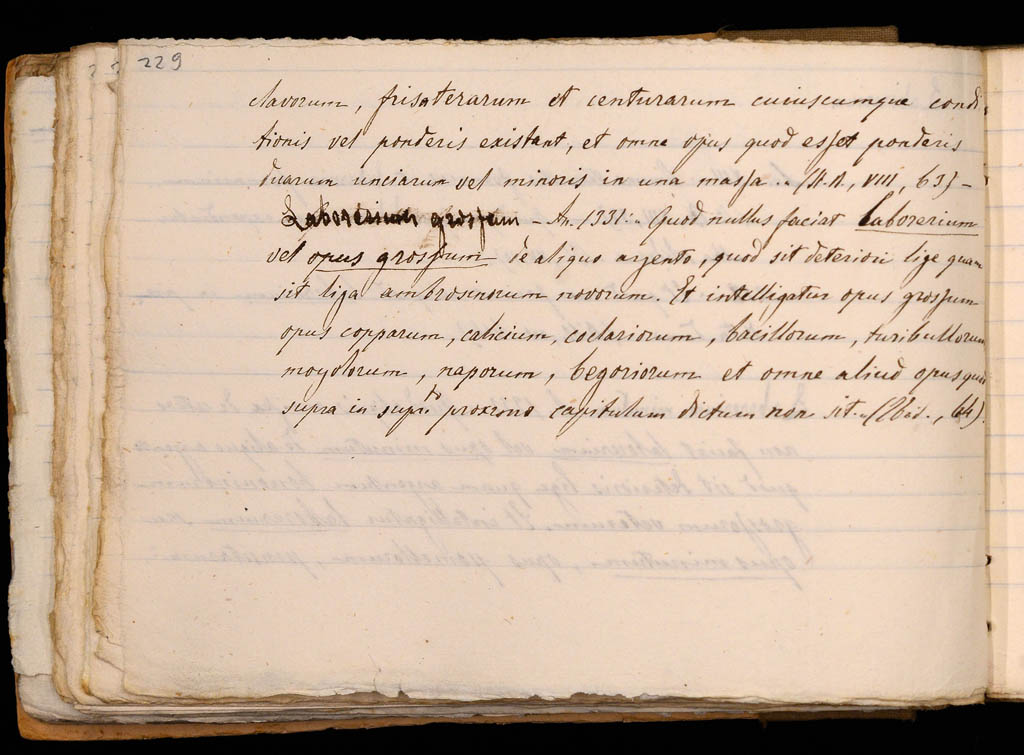 229
clavorum, frisaterarum et centurarum cuiuscumque condi
tionis vel ponderis existant, et omne opus quod esset ponderis
duarum unciarum vel minoris in una massa .. (St. A., VIII, 63) –
Laborerium grossum – An. 1331: . Quod nullus faciat laborerium
vel opus grossum de aliquo argento, quod sit deterioris lige quam
sit liga ambrosinorum novorum. Et intelligatur opus grossum
opus copparum, calicium, coclariorum, bacillorum, turibullorum
moyolorum, naporum, begoriorum et omne aliud opus quod
supra in supr.to proximo capitulum dictum non sit.. (Ibid., 64).